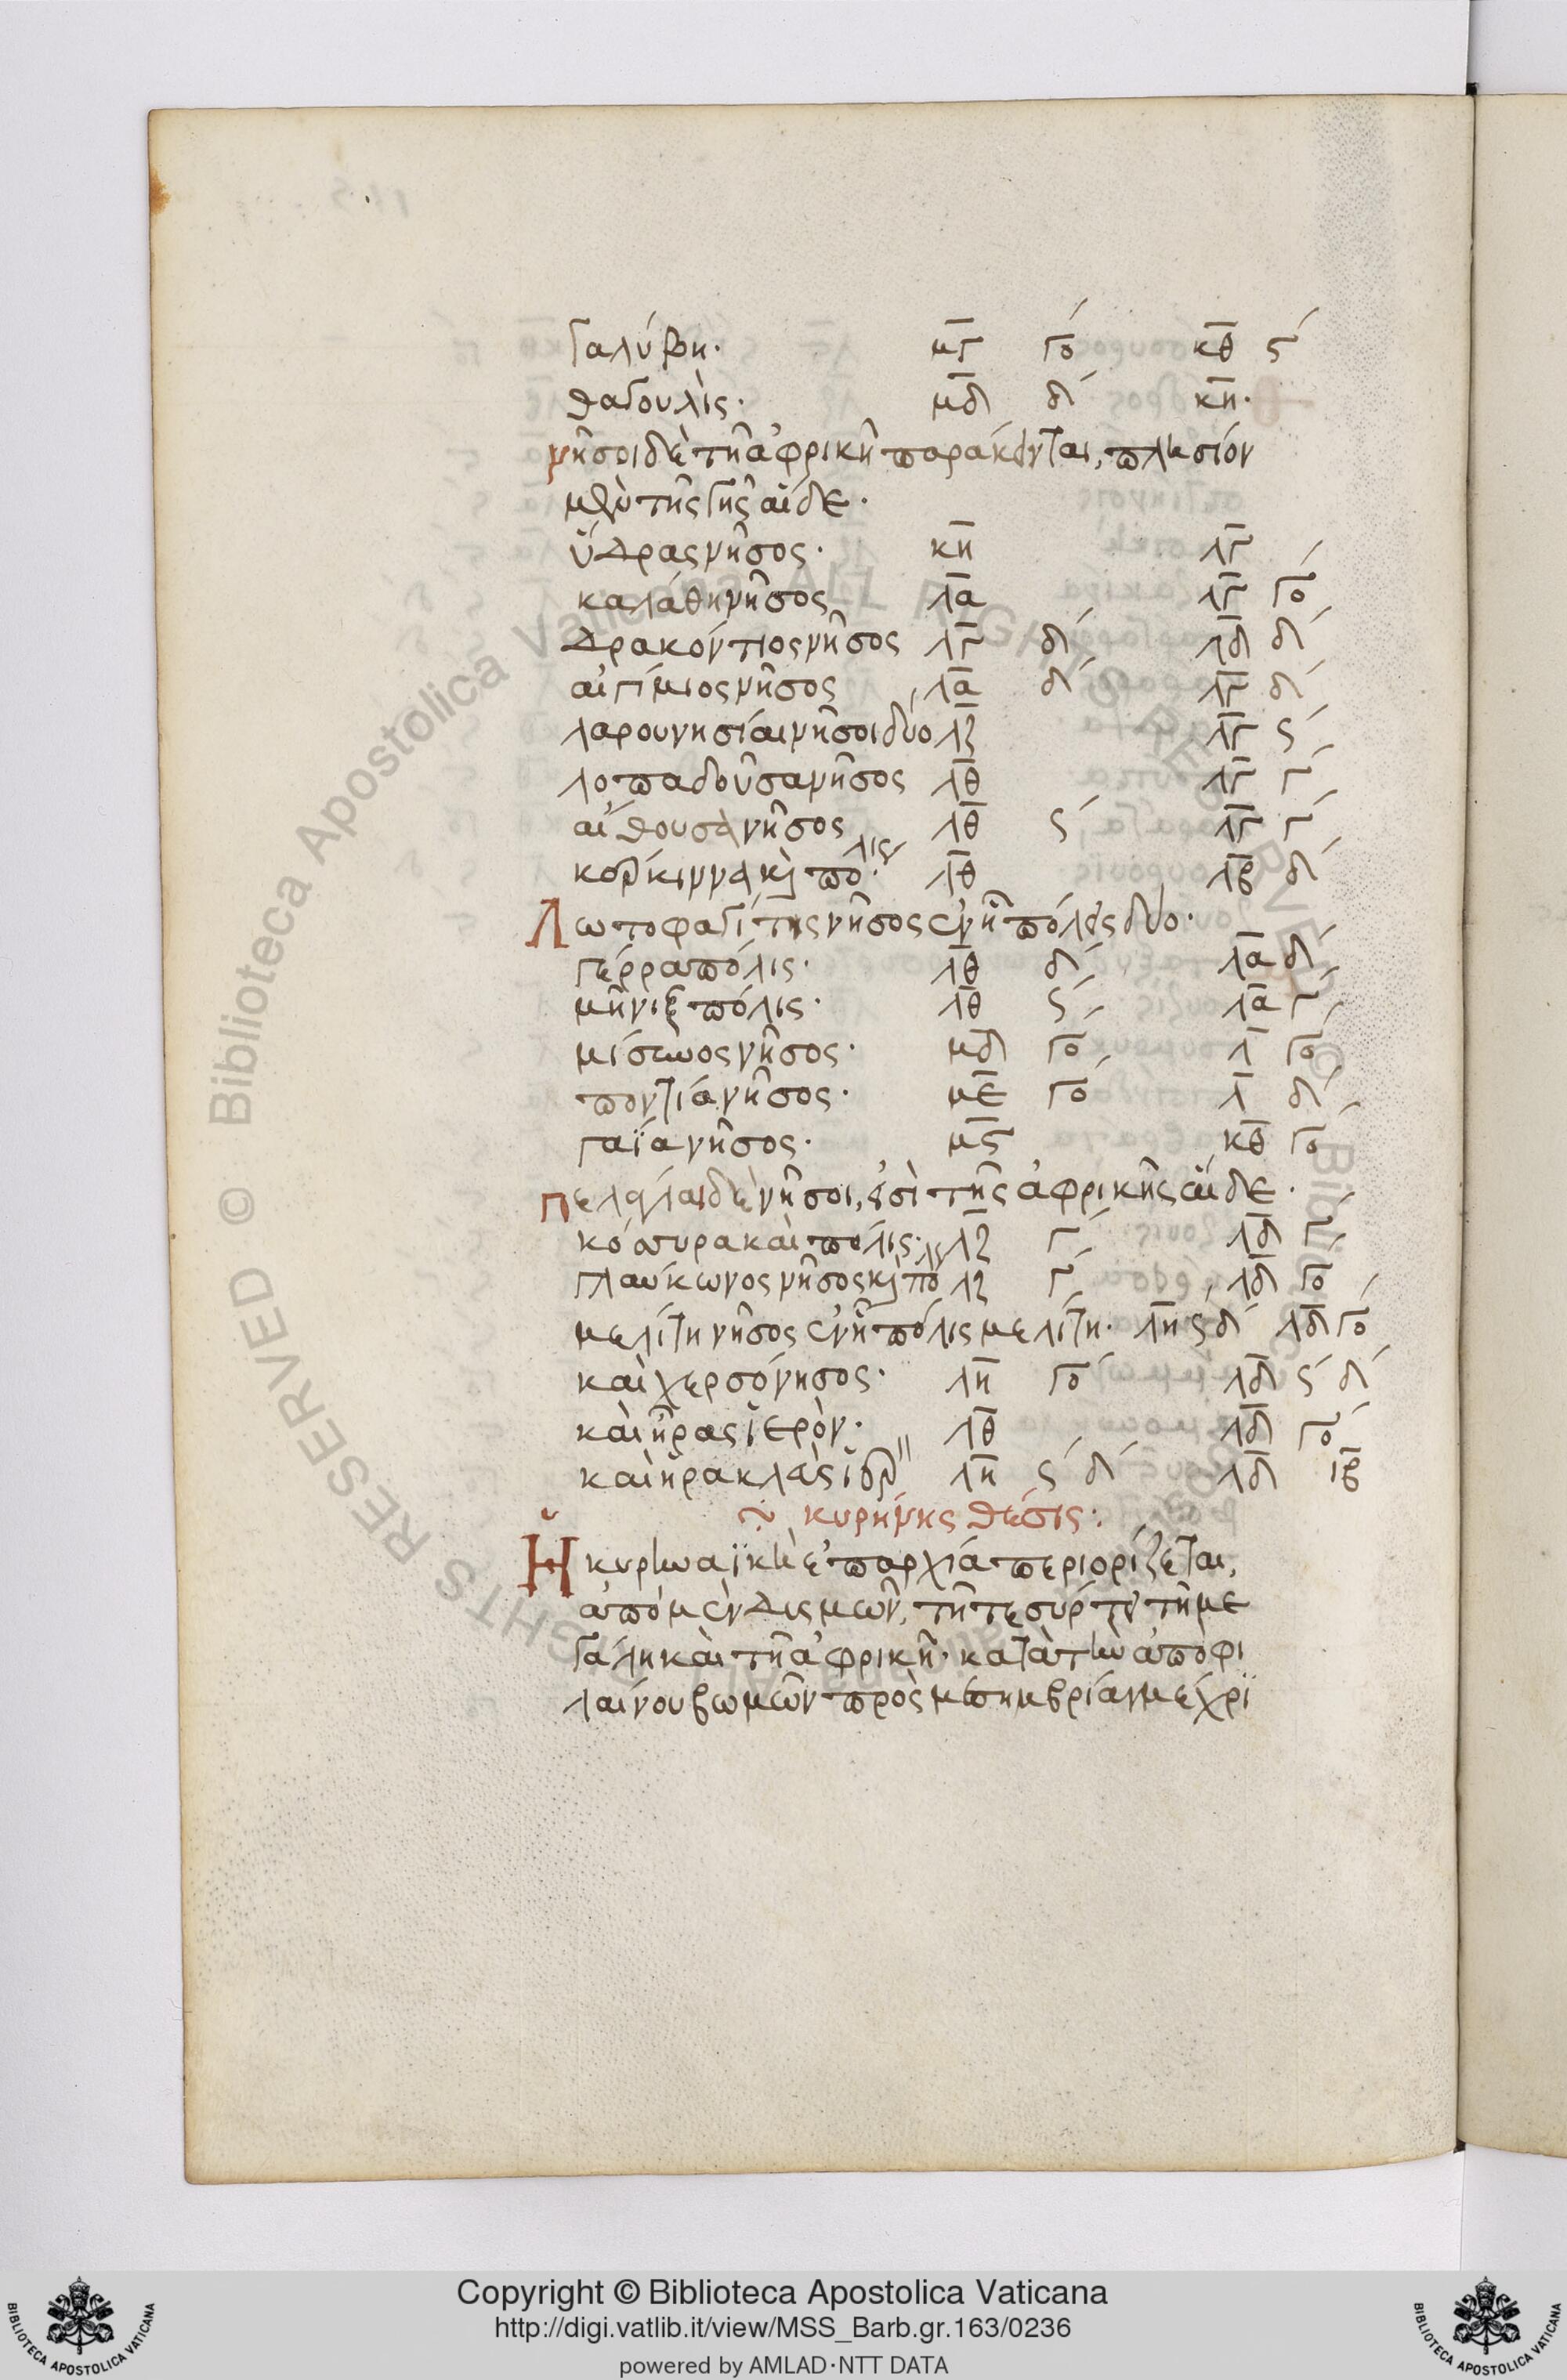 Γαλύβη· μγ γο κθ ς
θαγουλὶς· μδ δ κη·
νῆσοι δὲ τῆ ἀφρικῆ παράκεινται, πλησίον
μὲν τῆς γῆς αἵδε·
ὕδρας νῆσος· κη λγ
καλάθη νῆσος λα λγ γο
δρακόντιος νῆσος λγ δ λδ δ
αἰγίμιος νῆσος λα δ λγ δ
λαρουνησίαι νῆσοι δύο λζ λγ ς
λοπαδοῦσα νῆσος λθ λγ γ
αἴθουσα νῆσος λθ ς λγ γ
κερκιννα κὶ πόλις· λθ λβ δ
Λωτοφαγίτης νῆσος ἐν ἧ πόλεις δύο·
γέρρα πόλις· λθ δ λα δ
μῆνιξ πόλις· λθ ς λα γ
μίσυνος νῆσος· μδ γο λ γο
ποντία νῆσος· με γο λ δ
γαΐα νῆσος· μς κθ γο
πελάγιαι δὲ νῆσοι, εἰσὶ τῆς ἀφρικῆς αἵδε·
κόσυρα καὶ πόλις· λζ γ λδ γ
γλαύκωνος νῆσος κὶ πόλις λζ γ λδ γο
μελίτη νῆσος ἐν ἧ πόλις μελίτη· λη ς δ λδ γο
καὶ χερσόνησος· λη γο λδ ς δ
καὶ ἥρας ἱερὸν· λθ λδ γο
καὶ ἡρακλέους ἱερ λη ς δ λδ ιβ
κυρήνης θέσις:
Ἡ κυρηναϊκὴ ἐπαρχία περιορίζεται,
ἀπὸ μὲν δυσμῶν, τῆ τε σύρτει τῆ με
γάλη καὶ τῆ ἀφρικῆ· κατὰ τὴν ἀπὸ φι
λαίνου βωμῶν πρὸς μεσημβρίαν μέχρϊ
Copyright © Biblioteca Apostolica Vaticana
http://digi.vatlib.it/view/MSS_Barb.gr.163/0236
powered by AMLAD·NTT DATA